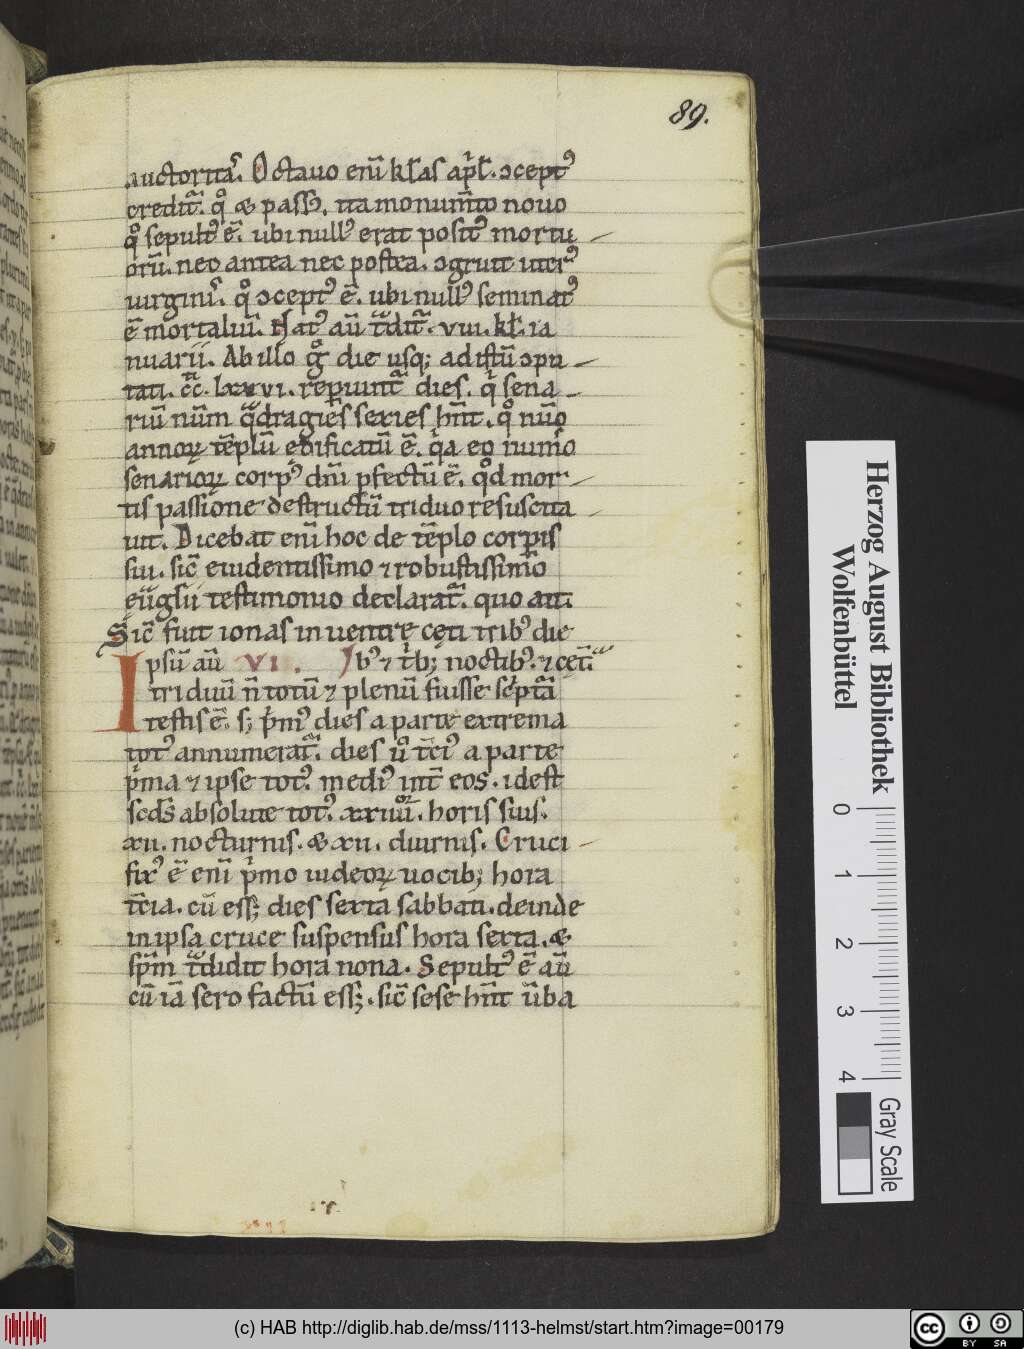 89.
auctoritaſ. Octauo eni̅ kl̅as ap̍l̅. ɔceptꝰ
credit᷑. qͦ & passꝰ. ita monum̅to nouo
qͦ sepultꝰ e̅. ubi nullꝰ erat positꝰ mortu
oru̅. nec antea nec postea. ɔgruit uterꝰ
uirginiſ. qͦ ɔceptꝰ e̅. ubi nullꝰ seminatꝰ
e̅ mortaliu̅. Natꝰ au̅ t͛dit᷑. viii. kl̅. ia
nuarii. Ab illo g̊ die usq; ad istu̅ ɔpu
tati. cc̅. lxxvi. reperiunt᷑ dies. qͥ sena
riu̅ num̅ qᷓdragies sexies hn̅t. qͦ nu̅o
annoꝝ te̅plu̅ ędificatu̅ e̅. qͥa eo num̅o
senarioꝝ corpꝰ dn̅i ꝑfectu̅ e̅. qͦd mor
tis passione destructu̅ triduo resuscita
uit. Dicebat eni̅ hoc de te̅plo corꝑis
sui. sic̅ euidentissimo ⁊ robustissim̅o
eu̅gl̅ii testimonio declarat᷑. quo ait.
Sic̅ fuit ionas in uentrę cęti tribꝰ die
ipsu̅ au̅ VI. bꝰ ⁊ t̍b; noctibꝰ. ⁊ cęt̅.
triduu̅ n̅ totu̅ ⁊ plenu̅ fuisse sc̅pt᷑a
testis e̅. s; p̍mꝰ dies a parte extrema
totꝰ annumerat᷑. dies uͦ tc̅iꝰ a parte
p̍ma ⁊ ipse totꝰ. mediꝰ int̅ eos. idest
scd̅s absolute totꝰ. xxiiii. horis suis.
xii. nocturnis. & xii. diurnis. Cruci
fixꝰ e̅ eni̅ p̍mo iudeoꝝ uocib; hora
tc̅ia. cu̅ ess; dies sexta sabbati. deinde
in ipsa cruce suspensus hora sexta. &
sp̅m t͛didit hora nona. Sepultꝰ e̅ au̅
cu̅ ia̅ sero factu̅ ess;. sic̅ sese hn̅t u̅ba
Herzog August Bibliothek
Wolfenbüttel
0 1 2 3 4
Gray Scale
(c) HAB http://diglib.hab.de/mss/1113-helmst/start.htm?image=00179
cc BY SA